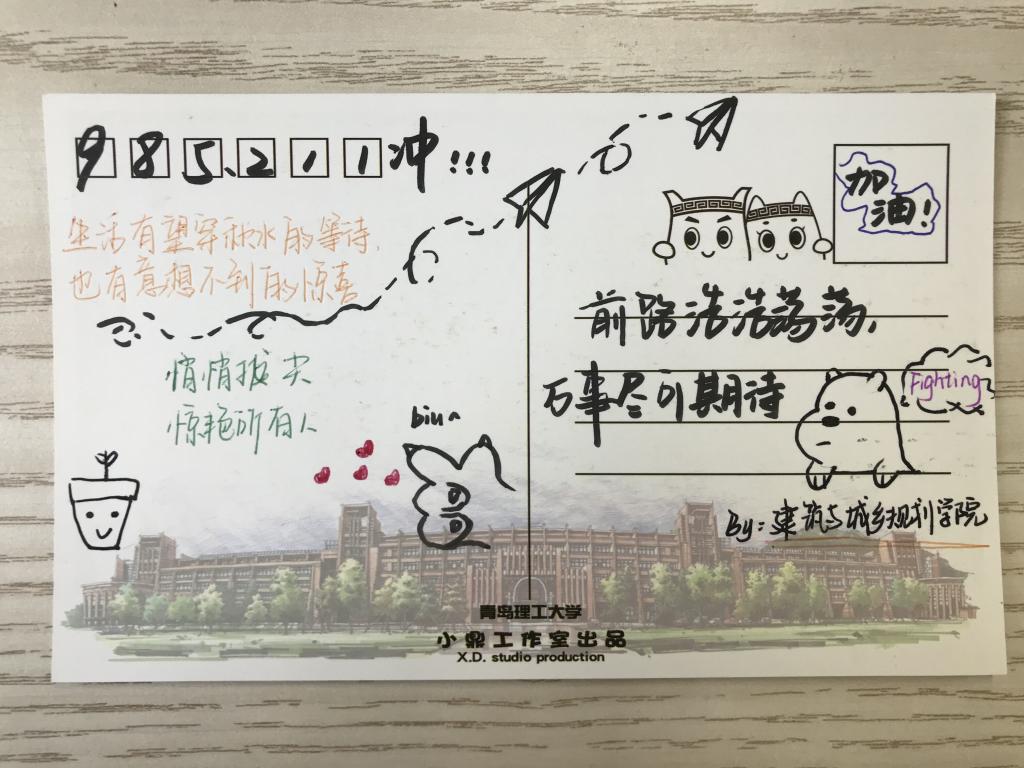 985.211冲!!!
生活有望穿秋水的等待,
也有意想不到的惊喜
悄悄拔尖
惊艳所有人
biu~
加
油!
前路浩浩荡荡,
万事尽可期待
Fighting
By: 建筑与城乡规划学院
青岛理工大学
小鼎工作室出品
X.D. studio production